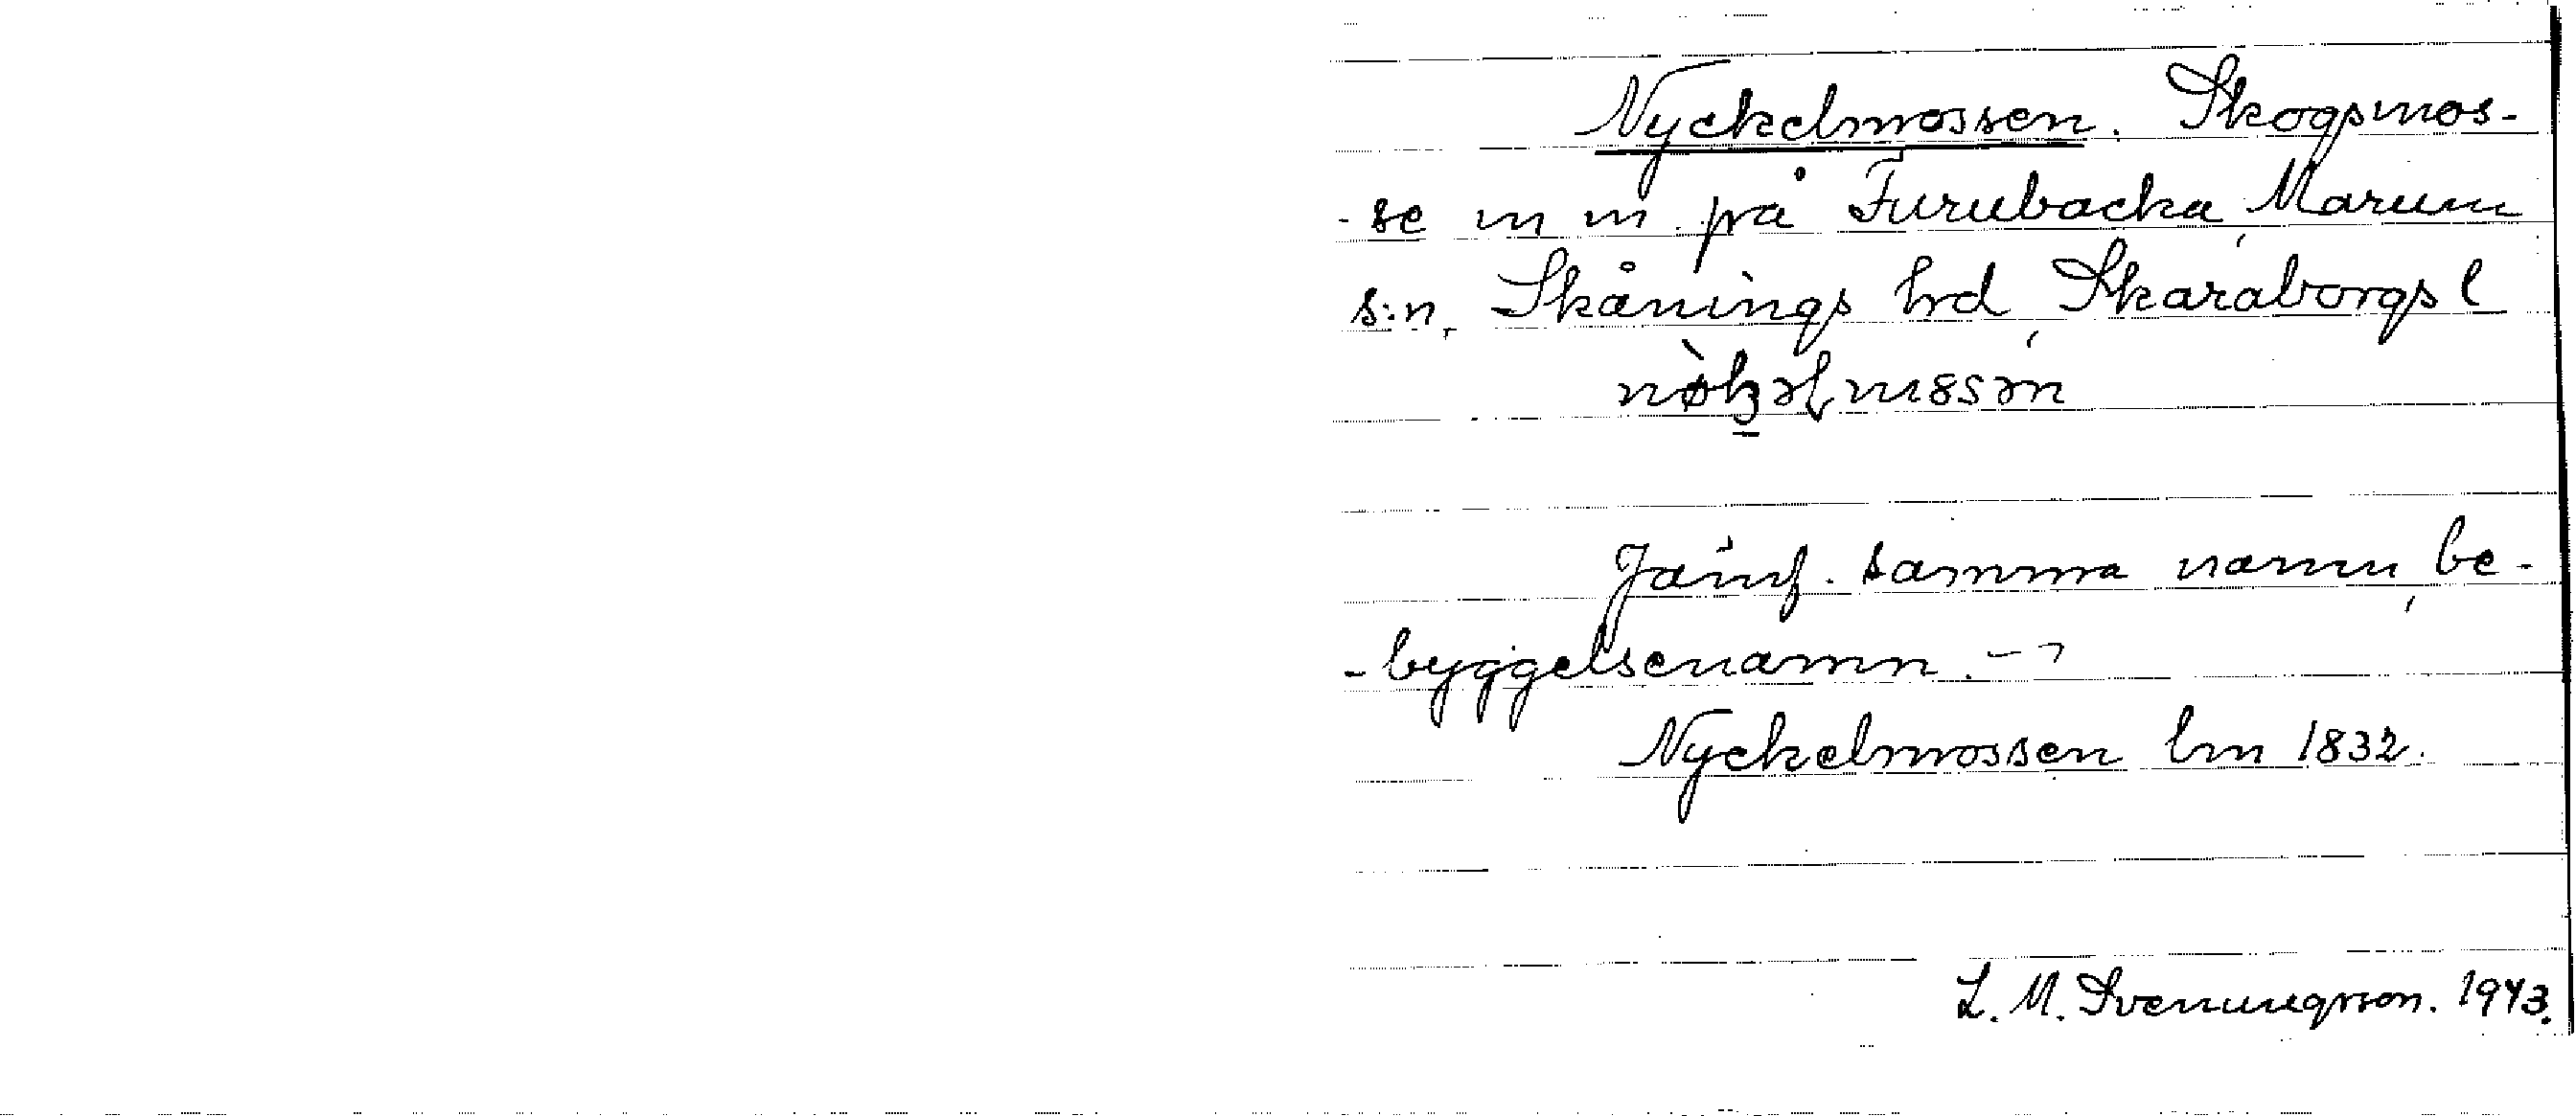 Nyckelmossen. Skogsmos-
-se m m på Furubacka, Marum
s:n, Skånings hrd, Skaraborgs l
Jämf. samma namn, be-
-byggelsenamn.
Nyckelmossen lm 1832.
L. M. Svenungsson. 1943.